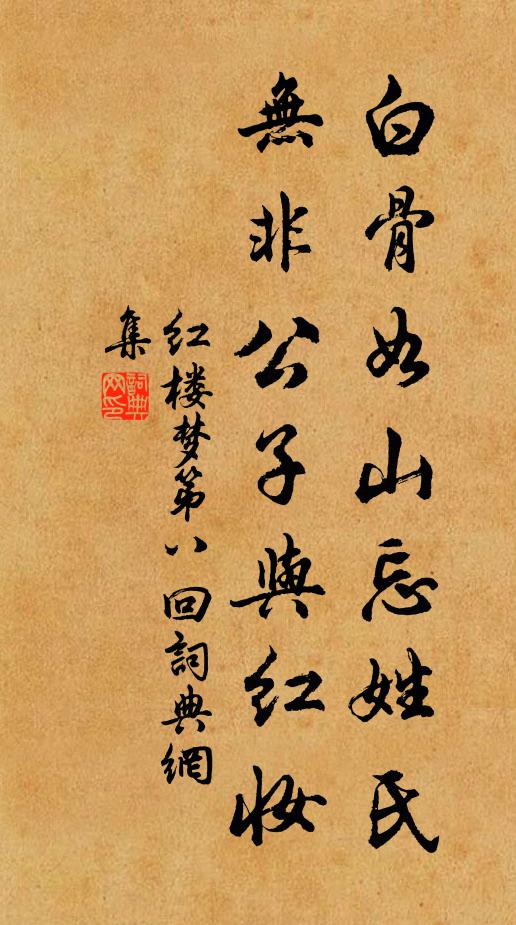 白骨如山忘姓氏
無非公子與红妝
红楼梦第八回詞典網
集
詞典网印